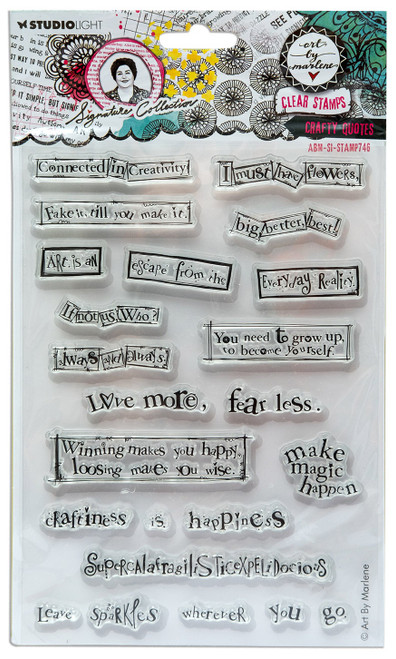 STUDIOLIGHT
Signature Collection
art by marlene
CLEAR STAMPS
CRAFTY QUOTES
ABM-SI-STAMP746
Connected in Creativity!
I must have flowers,
Fake it, till you make it.
big, better, best!
ART is an
escape from the
Everyday Reality.
If not us, Who?
You need to grow up,
to become yourself.
always and always.
Love more, fear less.
Winning makes you happy,
loosing makes you wise.
make
magic
happen
craftiness is happiness
SUPERCALAFRAGILISTICEXPELIDOCIOUS
Leave sparkles wherever you go
© Art By Marlene